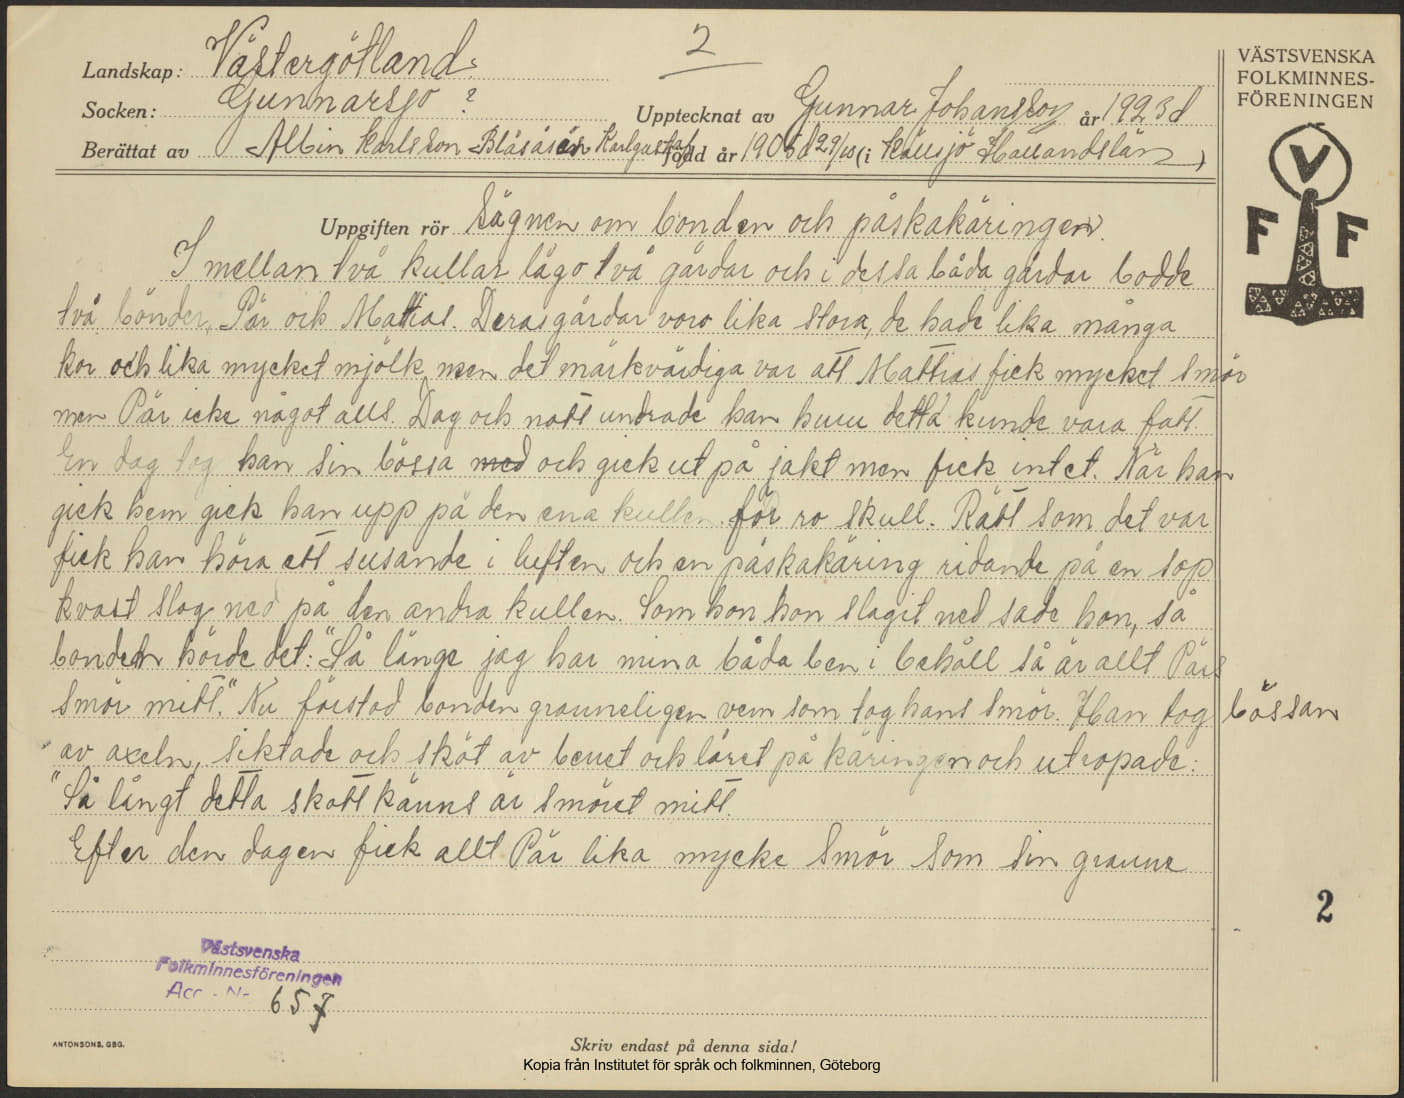 2
Landskap: Västergötland.
Socken: Gunnarsjö ?
Upptecknat av Gunnar Johansson år 1923
Berättat av Albin Karlsson Blåsåsen Karlgustaf född år 1905 29/10 (i Källsjö Hallandslän)
VÄSTSVENSKA
FOLKMINNES-
FÖRENINGEN
V
F F
Uppgiften rör Sägnen om bonden och påskakäringen.
I mellan två kullar lågo två gårdar och i dessa båda gårdar bodde
två bönder, Pär och Mattias. Deras gårdar voro lika stora, de hade lika många
kor och lika mycket mjölk men det märkvärdiga var att Mattias fick mycket smör
men Pär icke något alls. Dag och natt undrade han huru detta kunde vara fatt.
En dag tog han sin bössa med och gick ut på jakt men fick intet. När han
gick hem gick han upp på den ena kullen för ro skull. Rätt som det var
fick han höra ett susande i luften och en påskakäring ridande på en sop
kvast slog ned på den andra kullen. Som hon hon slagit ned sade hon, så
bonden hörde det: "Så länge jag har mina båda ben i behåll så är allt Pärs
smör mitt." Nu förstod bonden grauneligen vem som tog hans smör. Han tog bössan
av axeln, siktade och sköt av benet och låret på käringen och utropade:
"Så långt detta skott känns är smöret mitt.
Efter den dagen fick allt Pär lika mycke smör som sin granne
2
Västsvenska
Folkminnesföreningen
Acc. Nr 657
ANTONSONS, GBG.
Skriv endast på denna sida!
Kopia från Institutet för språk och folkminnen, Göteborg